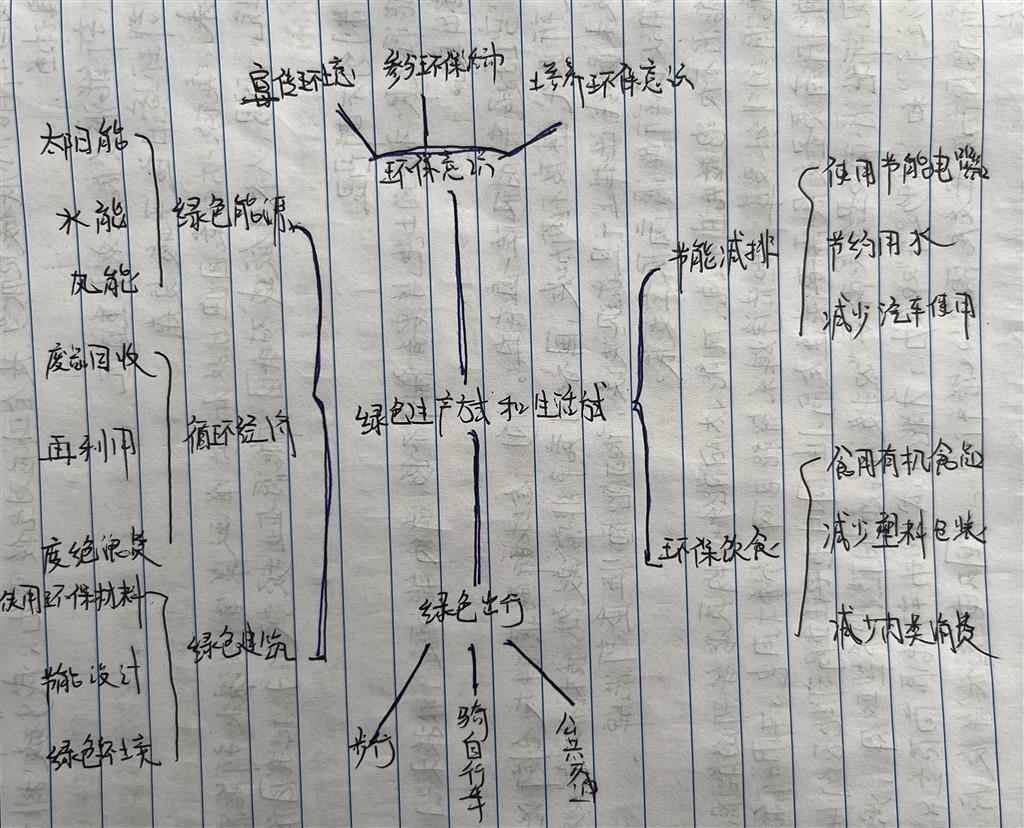 宣传环境
参与环保活动
培养环保意识
环保意识
太阳能
水能
风能
绿色能源
废品回收
再利用
度绝浪费
循环经济
使用环保材料
节能设计
绿色环境
绿色建筑
绿色生产方式和生活方式
节能减排
使用节能电器
节约用水
减少汽车使用
环保饮食
食用有机食品
减少塑料包装
减少肉类消费
绿色出行
步行
骑自行车
公共交通